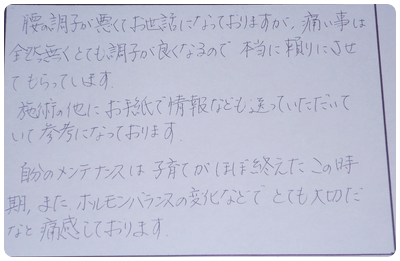 腰の調子が悪くてお世話になっておりますが、痛い事は
全然無くとても調子が良くなるので 本当に頼りにさせ
てもらっています.
施術の他に お手紙で情報なども送っていただいて
いて参考になっております.
自分のメンテナンスは 子育てがほぼ終えた この時
期, また ホルモンバランスの変化などで とても大切だ
なと 痛感しております.